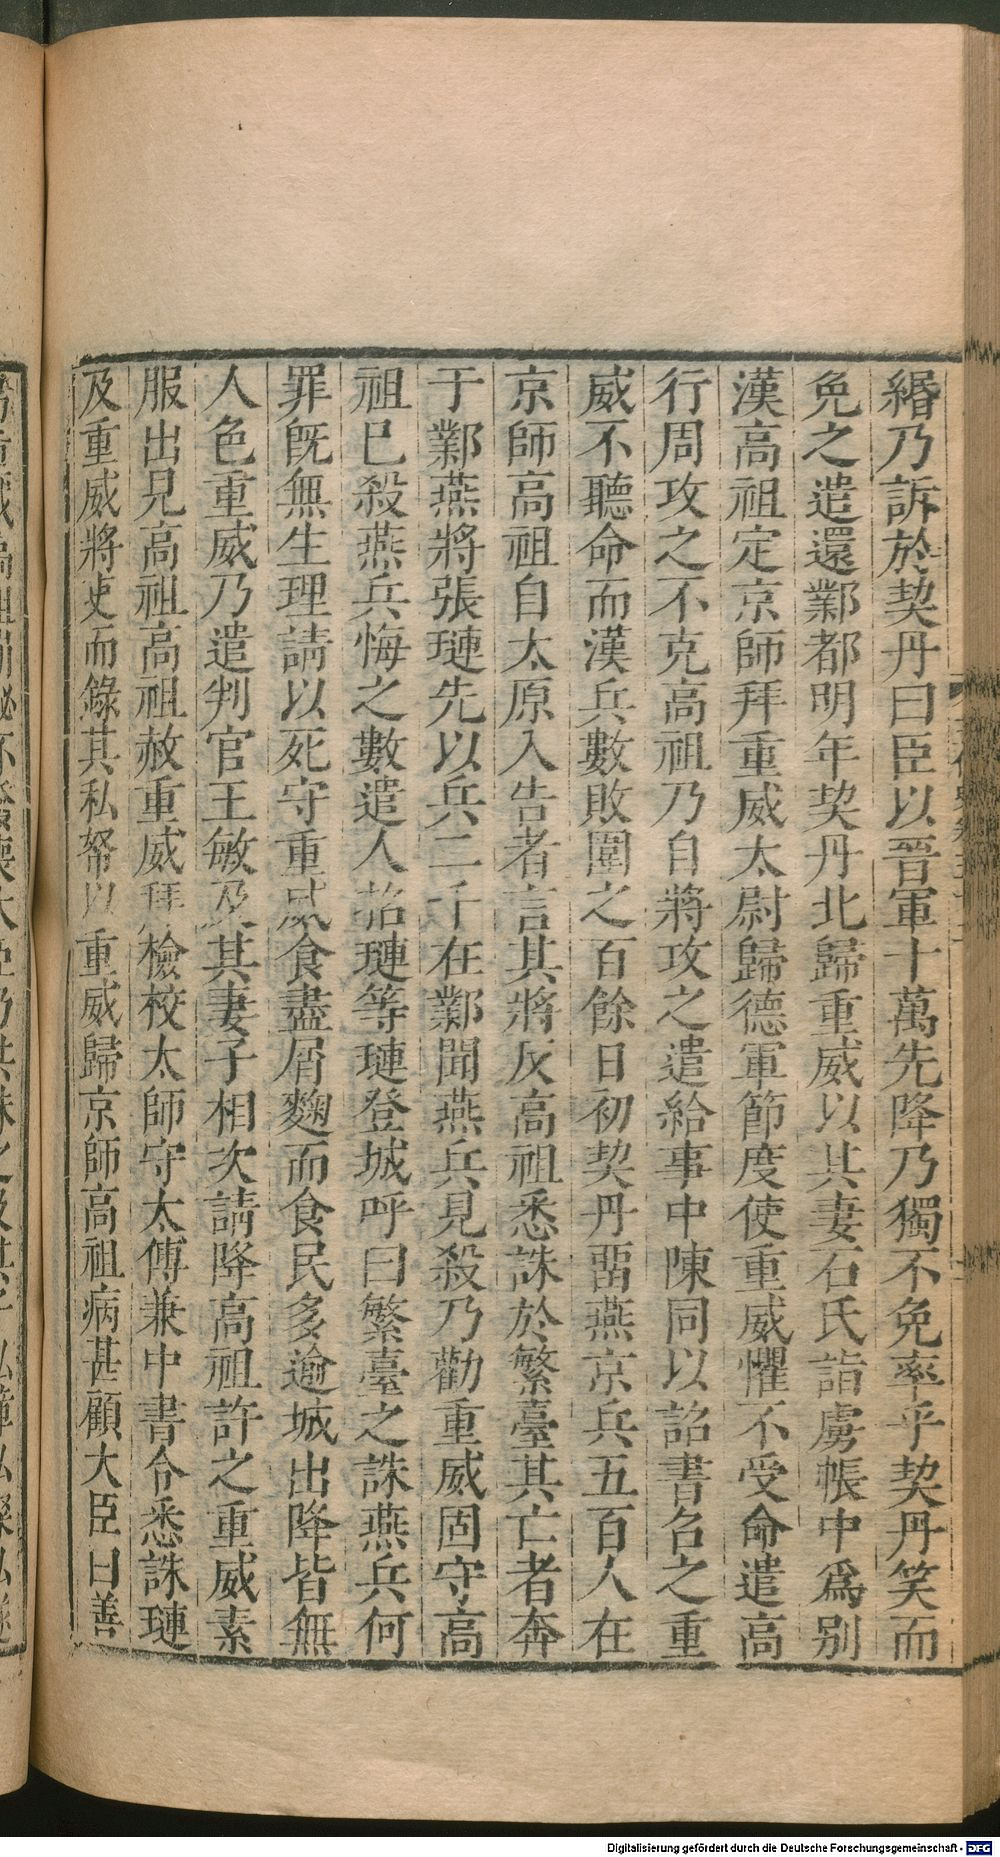 緡乃訴於契丹曰臣以晉軍十萬先降乃獨不免率乎契丹笑而
免之遣還鄴都明年契丹北歸重威以其妻石氏詣虜帳中爲别
漢高祖定京師拜重威太尉歸德軍節度使重威懼不受命遣高
行周攻之不克高祖乃自將攻之遣給事中陳同以詔書召之重
威不聽命而漢兵數敗圍之百餘日初契丹畱燕京兵五百人在
京師高祖自太原入告者言其將反高祖悉誅於繁臺其亡者奔
于鄴燕將張璉先以兵二千在鄴聞燕兵見殺乃勸重威固守高
祖已殺燕兵悔之數遣人招璉等璉登城呼曰繁臺之誅燕兵何
罪旣無生理請以死守重威食盡屑麴而食民多逾城出降皆無
人色重威乃遣判官王敏及其妻子相次請降高祖許之重威素
服出見高祖高祖赦重威拜檢校太師守太傅兼中書令悉誅璉
及重威將吏而錄其私帑以重威歸京師高祖病甚顧大臣曰善
Digitalisierung gefördert durch die Deutsche Forschungsgemeinschaft - DFG